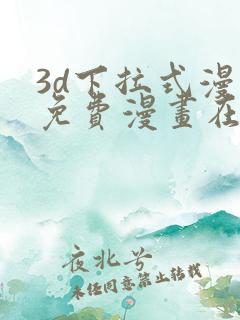 3d下拉式漫
免費漫畫在
夜北兮
未经同意禁止转载